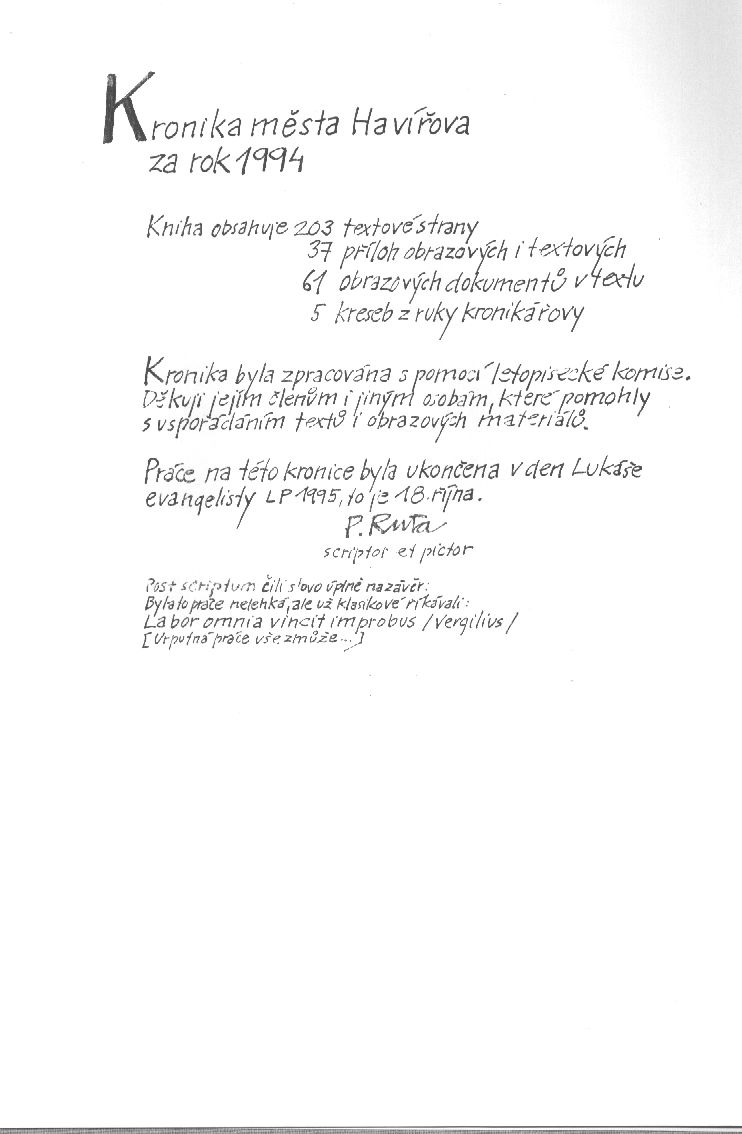 Kronika města Havířova
za rok 1994
Kniha obsahuje 203 textové strany
37 příloh obrazových i textových
61 obrazových dokumentů v textu
5 kreseb z ruky kronikářovy
Kronika byla zpracována s pomocí letopisecké komise.
Děkuji jejím členům i jiným osobám, které pomohly
s uspořádáním textů i obrazových materiálů.
Práce na této kronice byla ukončena v den Lukáše
evangelisty LP 1995, to je 18. října.
P. Ruta
scriptor et pictor
Post scriptum čili slovo úplně na závěr:
Byla to práce nelehká, ale už klasikové říkávali:
Labor omnia vincit improbus /Vergilius/
[Urputná práce vše zmůže...]